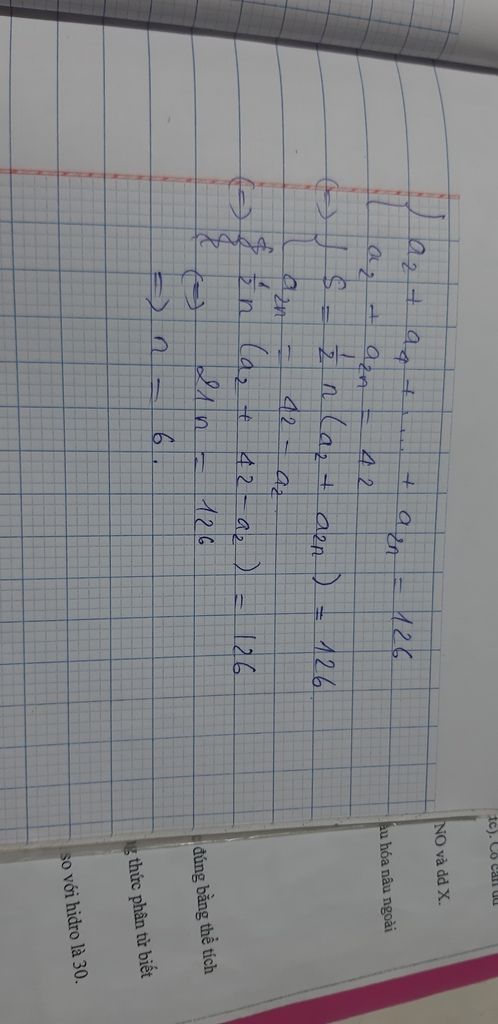 { a₂ + a₄ + ... + a₂ₙ = 126
a₂ + a₂ₙ = 42
(=) { S = 1/2 n (a₂ + a₂ₙ) = 126
a₂ₙ = 42 - a₂
(=) 1/2 n (a₂ + 42 - a₂) = 126
(=) 21n = 126
=) n = 6.
NO và dd X.
hóa nâu ngoài
đúng bằng thể tích
thức phân tử biết
so với hiđro là 30.